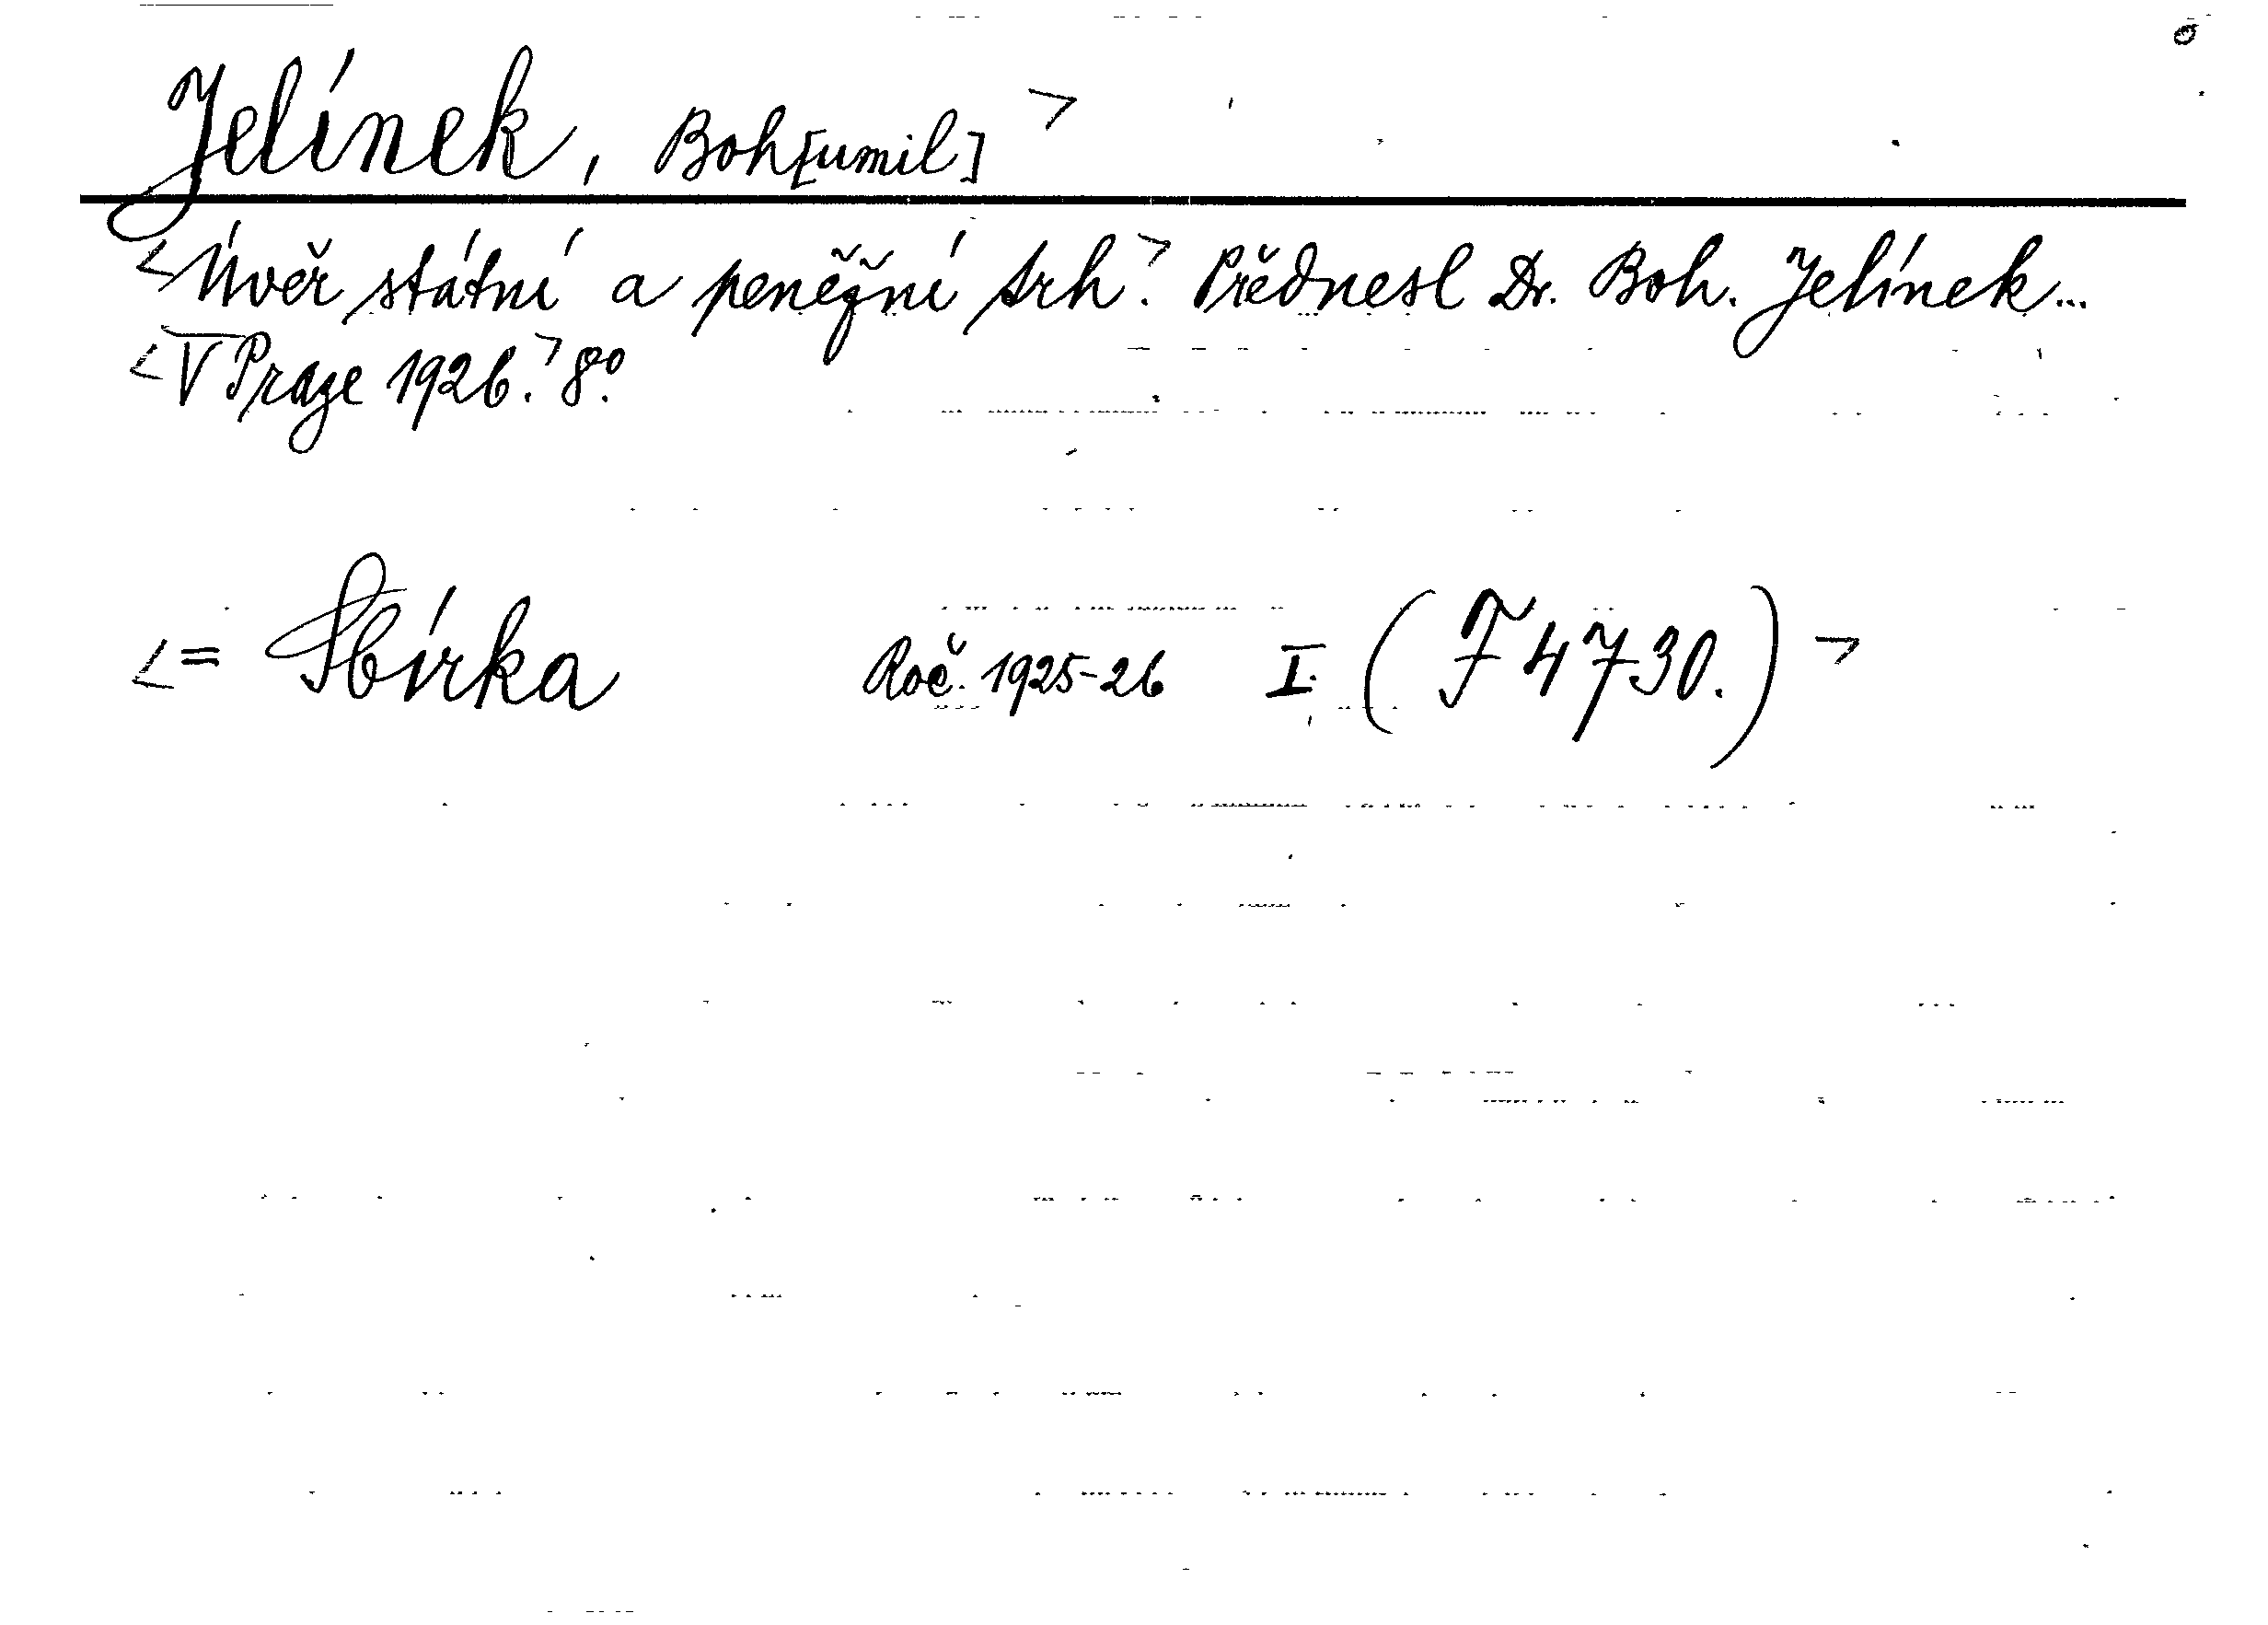 Jelínek, Boh[umil] >
<Úvěr státní a peněžní trh.> Přednesl Dr. Boh. Jelínek...
<V Praze 1926.> 8°.
<= Sbírka Roč. 1925-26 I. (F 4730.) >